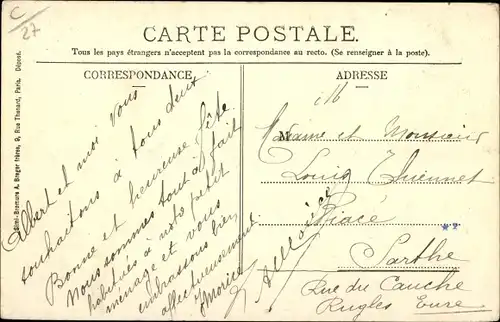 C
27
CARTE POSTALE.
Tous les pays étrangers n'acceptent pas la correspondance au recto. (Se renseigner à la poste).
CORRESPONDANCE
ADRESSE
Simi-Bromure A. Breger frères, 9, Rue Thenard, Paris. Déposé.
Albert et moi vous
souhaitons à tous deux
Bonne et heureuse fête
Nous sommes tout à fait
habitués à notre petit
ménage et vous
embrassons bien
affectueusement
Madame et Monsieur
Louis
Piacé
Sarthe
Rue du Cauche
Rugles Eure